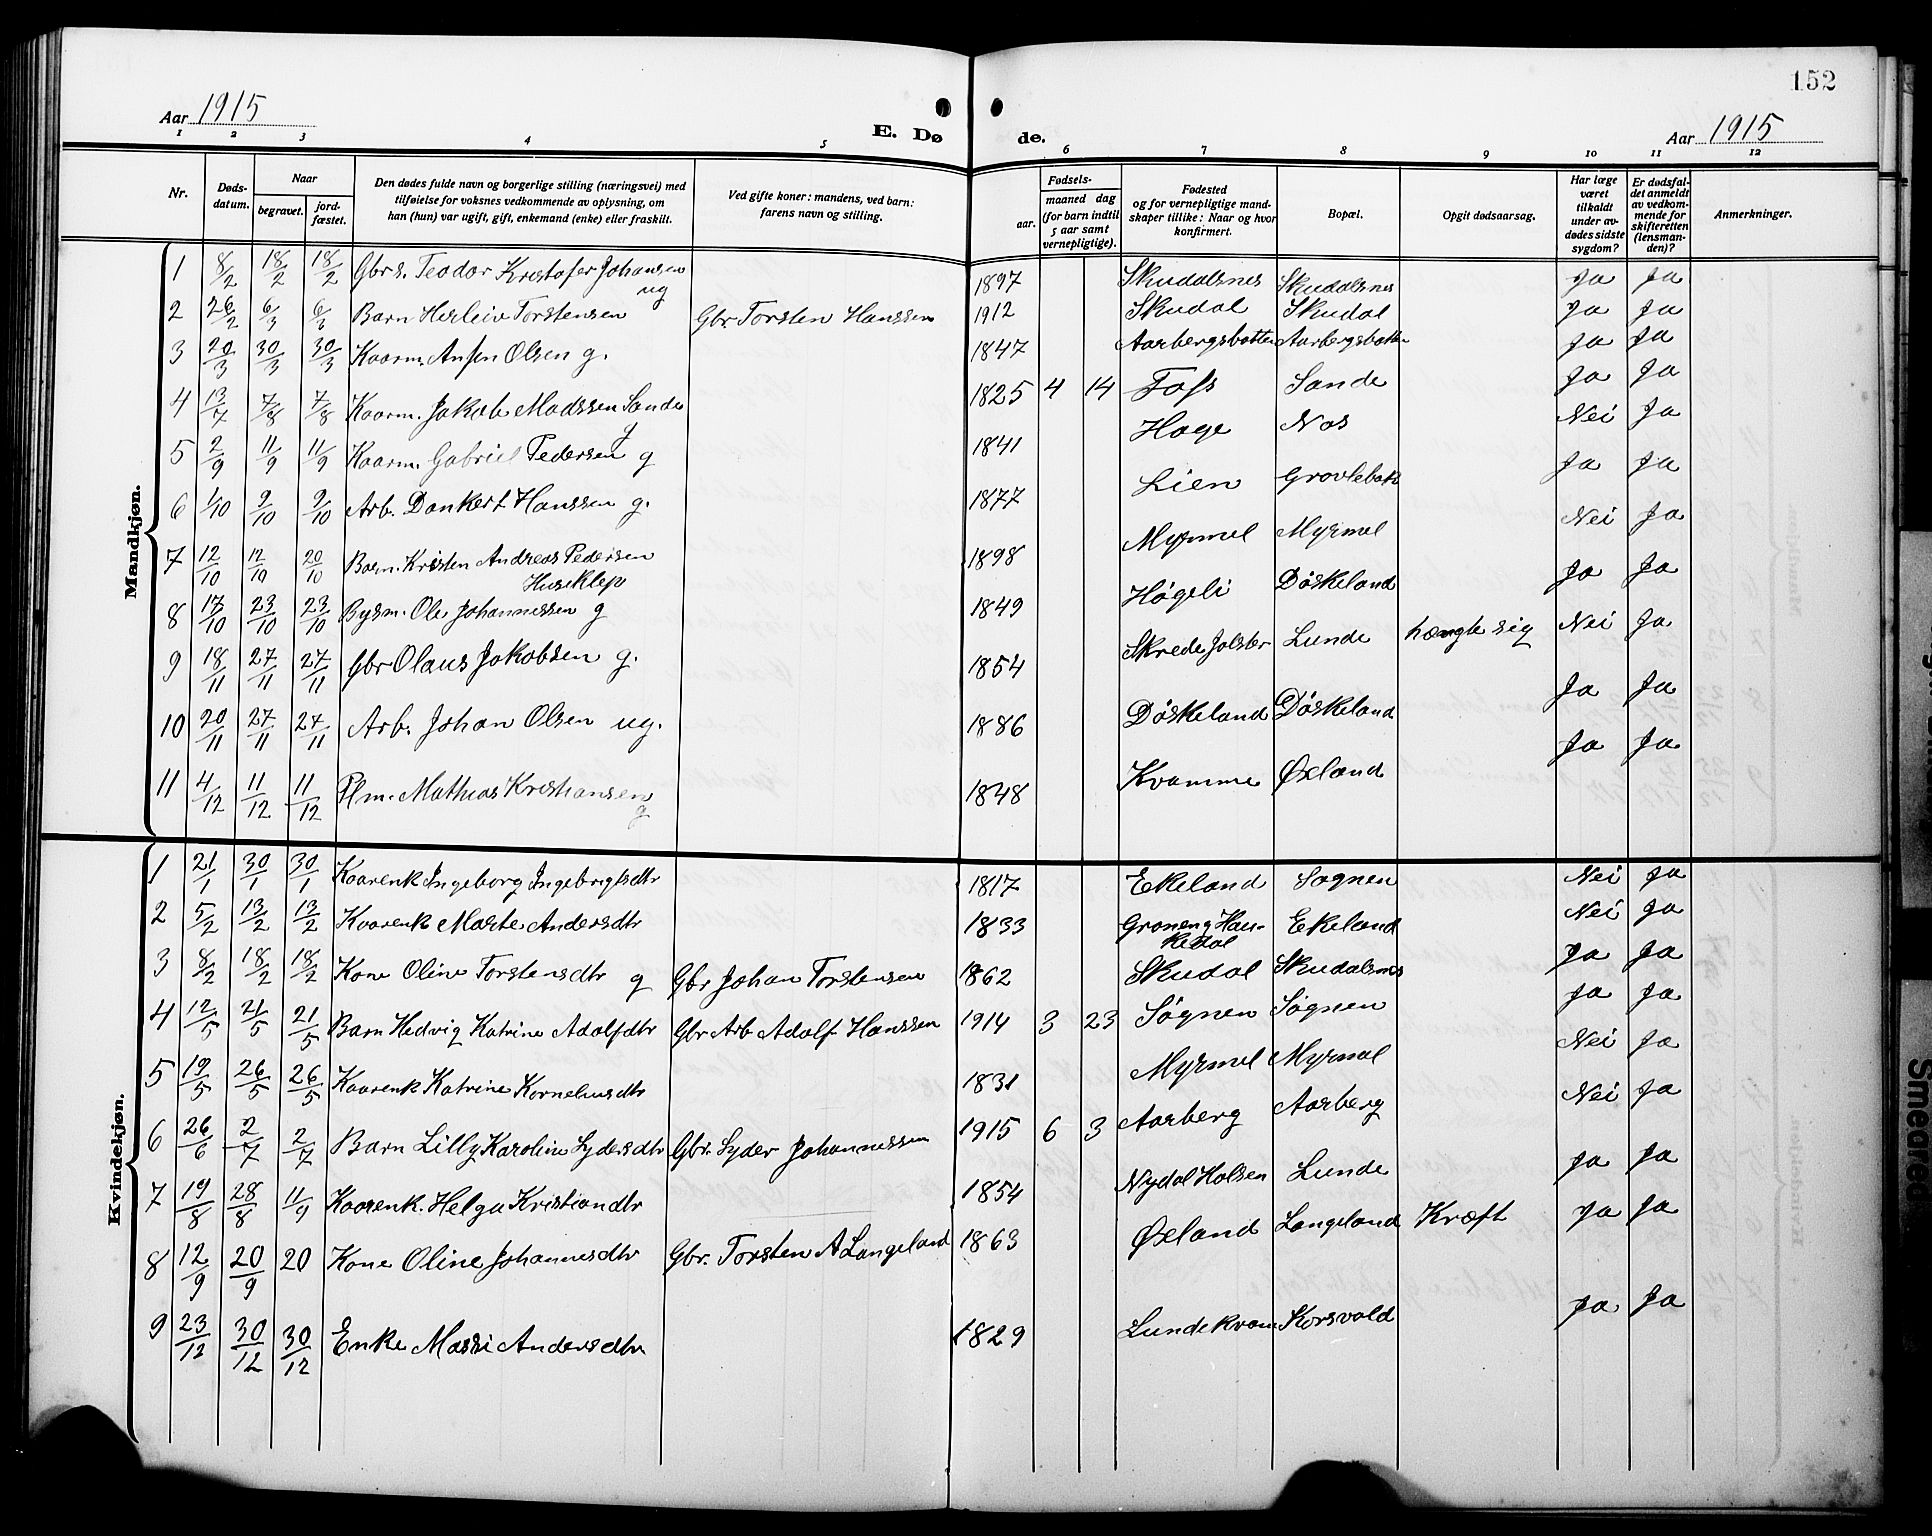 152
Aar 1915
E. Dø
de.
Aar 1915
1 2 3 4 5 6 7 8 9 10 11 12
Nr.
Døds-datum.
Naar
begravet.
jord-fæstet.
Den dødes fulde navn og borgerlige stilling (næringsvei) med tilføielse for voksnes vedkommende av oplysning, om han (hun) var ugift, gift, enkemand (enke) eller fraskilt.
Ved gifte koner: mandens, ved barn: farens navn og stilling.
Fødsels-
aar.
maaned dag (for barn indtil 5 aar samt vernepligtige).
Fødested og for vernepligtige mand-skaper tillike: Naar og hvor konfirmert.
Bopæl.
Opgit dødsaarsag.
Har læge været tilkaldt under av-dødes sidste sygdom?
Er dødsfal-det anmeldt av vedkom-mende for skifteretten (lensman-den)?
Anmerkninger.
Mandkjøn.
1 8/2 18/2 18/2 Gbrs. Teodor Kristofer Johansen ug 1897 Skudalsnes Skudalsnes Ja Ja
2 26/2 6/3 6/3 Barn Herleiv Torstensen Gbr Torsten Hanssen 1912 Skudal Skudal Ja Ja
3 20/3 30/3 30/3 Kaarm. Anfin Olsen g. 1847 Aarbergsbotten Aarbergsbotten Ja Ja
4 13/7 7/8 7/8 Kaarm. Jakob Madssen Sande g 1825 4 14 Foss Sande Ja Ja
5 2/9 11/9 11/9 Kaarm. Gabriel Pedersen g 1841 Hage Nos Nei Ja
6 1/10 9/10 9/10 Arb. Dankert Hanssen g. 1877 Lien Grovlebak Ja Ja
7 12/10 12/10 20/10 Barn. Kristen Andreas Pedersen Huseklep 1898 Myrmel Myrmel Nei Ja
8 17/10 23/10 23/10 Bygm. Ole Johannessen g 1849 Høgeli Døskeland Ja Ja
9 18/11 27/11 27/11 Gbr Olaus Jakobsen g. 1854 Skrede Jolster Lunde hængte sig Nei Ja
10 20/11 27/11 27/11 Arb. Johan Olsen ug. 1886 Døskeland Døskeland Ja Ja
11 4/12 11/12 11/12 Plm. Mathias Kristiansen g 1848 Kvamme Øxland Ja Ja
Kvindekjøn.
1 21/1 30/1 30/1 Kaarenk Ingeborg Ingebrigtsdtr 1817 Ekeland Sognen Nei Ja
2 5/2 13/2 13/2 Kaarenk Marte Andersdtr 1833 Groneng Haukedal Ekeland Nei Ja
3 8/2 18/2 18/2 Kone Oline Torstensdtr g Gbr Johan Torstensen 1862 Skudal Skudalsnes Ja Ja
4 12/5 21/5 21/5 Barn Hedvig Katrine Adolfdtr Gbr Arb Adolf Hanssen 1914 3 23 Søgnen Søgnen Ja Ja
5 19/5 26/5 26/5 Kaarenk Katrine Korneliusdtr 1831 Myrmel Myrmel Nei Ja
6 26/6 2/7 2/7 Barn Lilly Karoline Sydersdtr Gbr. Syder Johannessen 1915 6 3 Aarberg Aarberg Nei Ja
7 19/8 28/8 11/9 Kaarenk. Helga Kristiandtr 1854 Nydal Holsen Lunde Ja Ja
8 12/9 20/9 20 Kone Oline Johannesdtr Gbr. Torsten A Langeland 1863 Øxland Langeland Kræft Ja Ja
9 23/12 30/12 30/12 Enke Massi Andersdtr 1829 Lundekvam Korsvold Ja Ja
Smedered